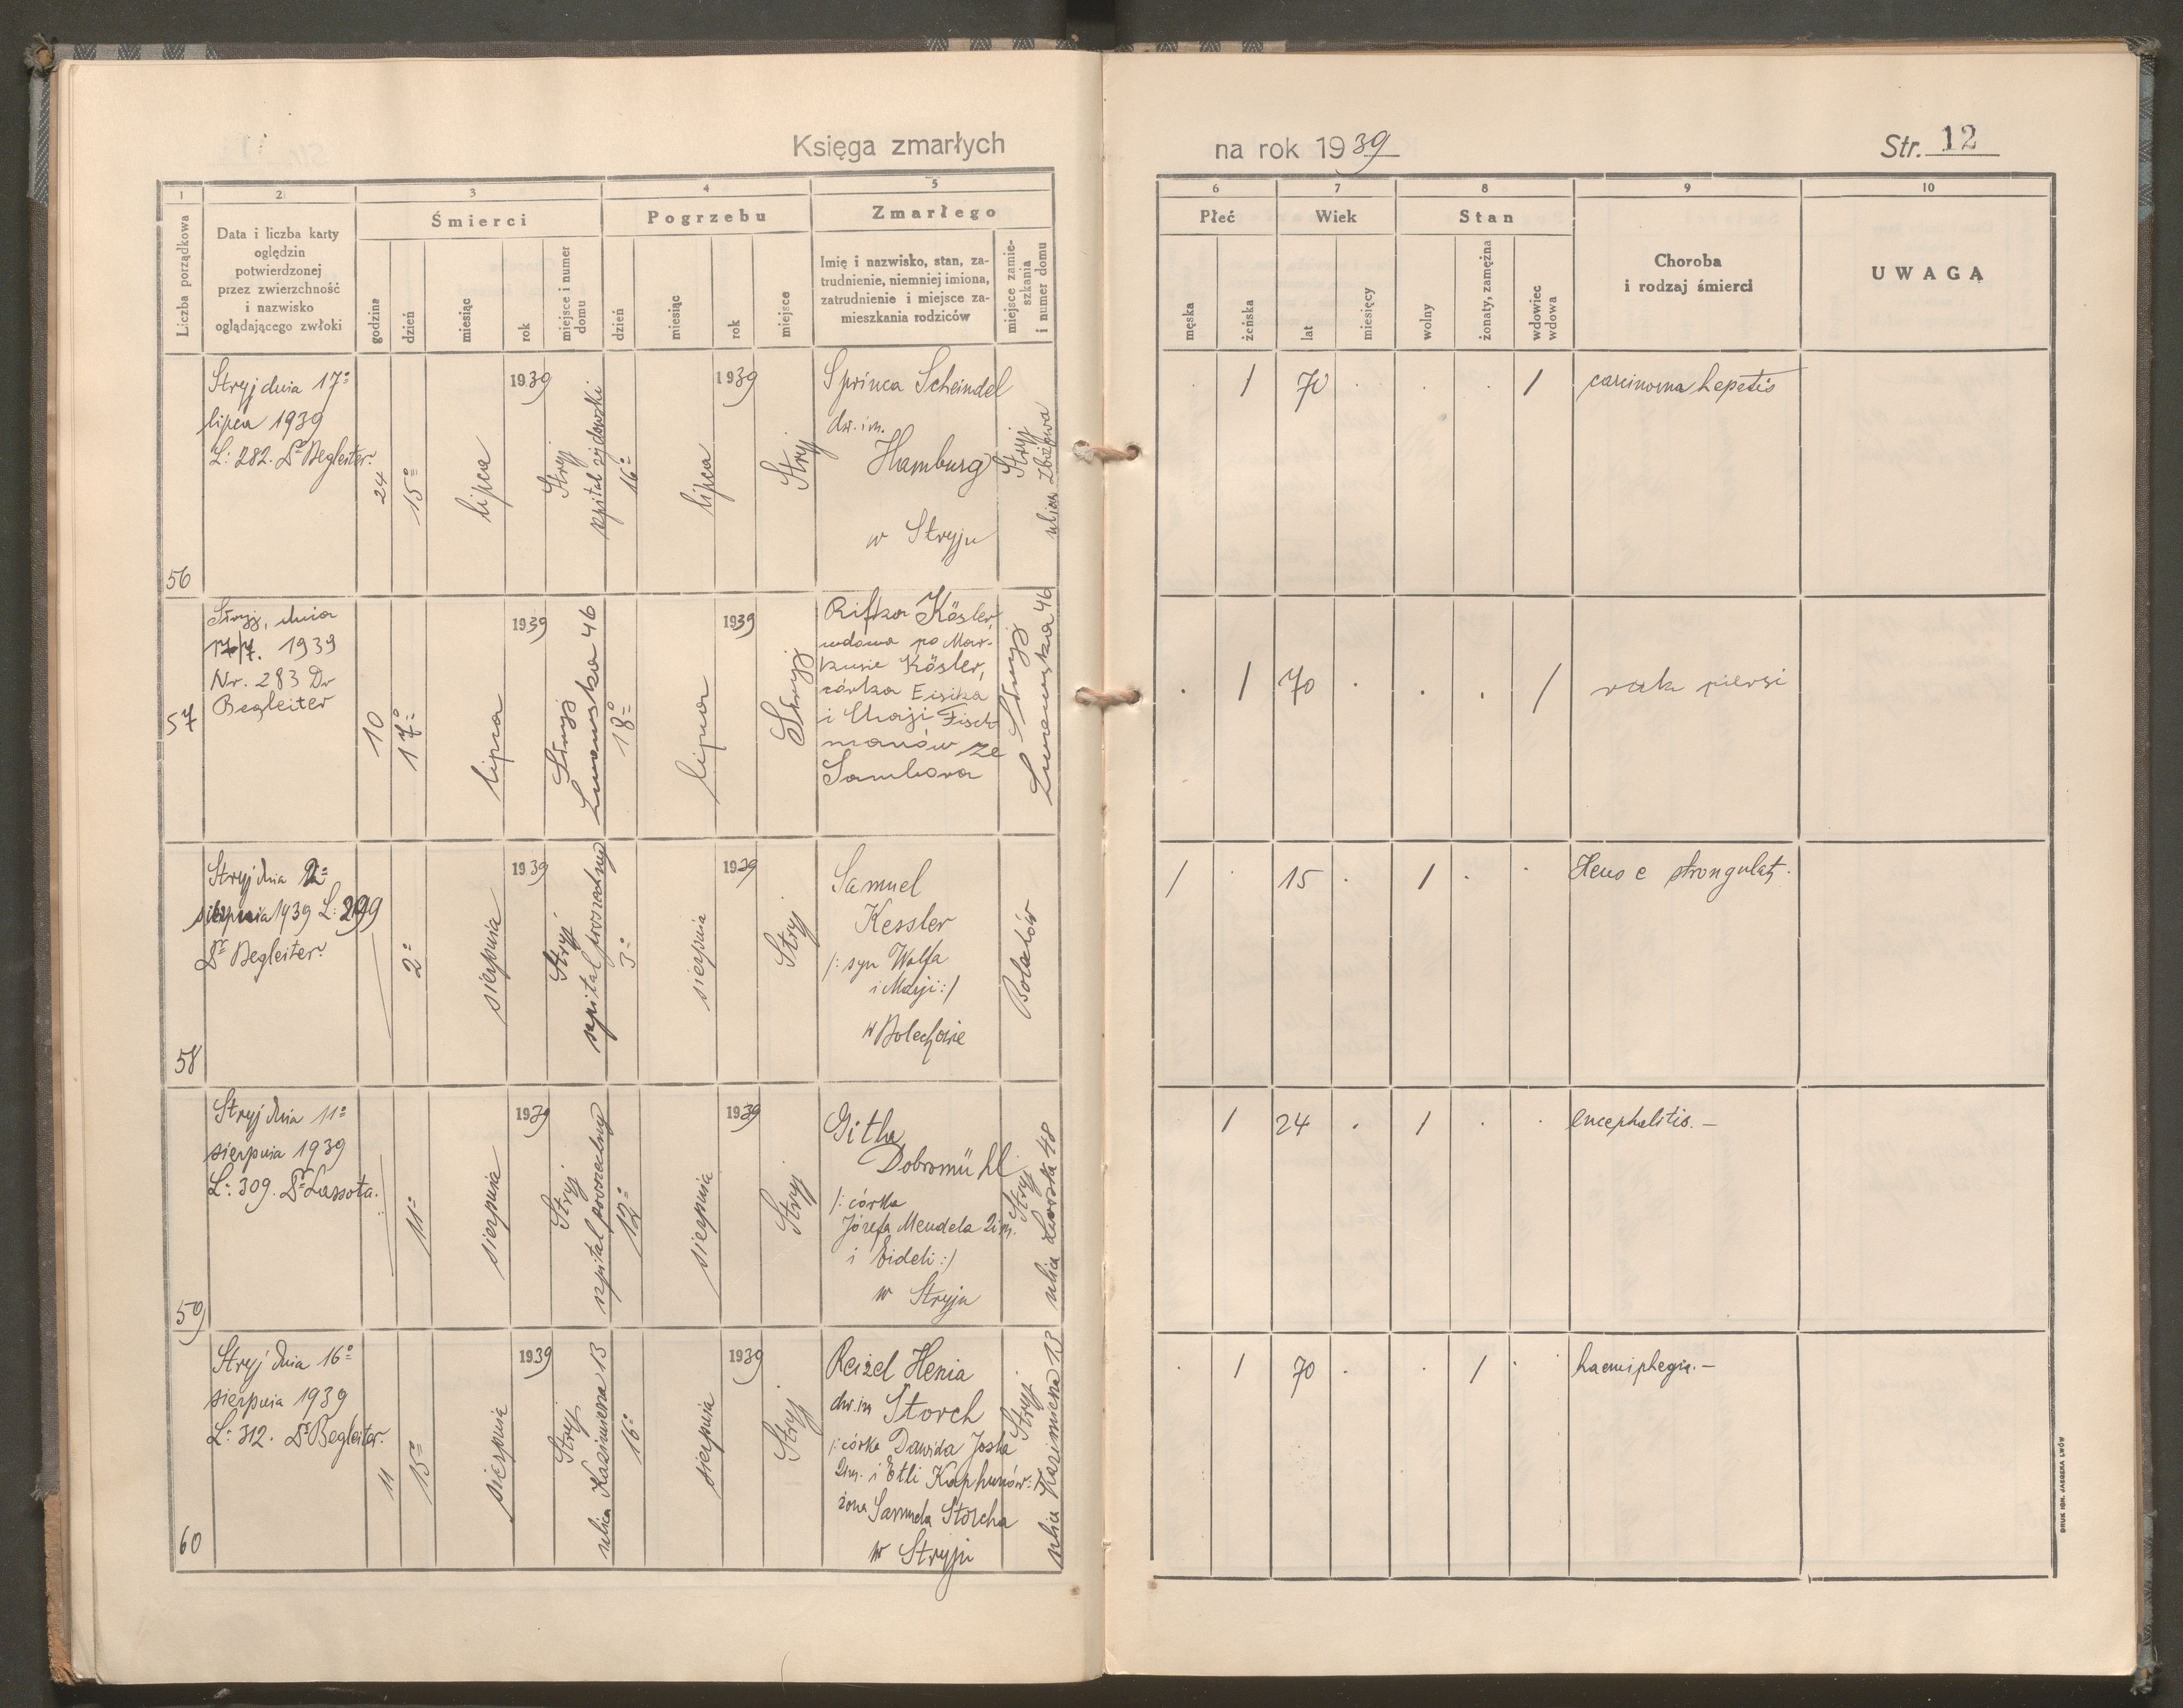 Księga zmarłych
na rok 1939
Str. 12
1 2 3 4 5
6 7 8 9 10
Liczba porządkowa
Data i liczba karty
oględzin
potwierdzonej
przez zwierzchność
i nazwisko
oglądającego zwłoki
Śmierci
godzina
dzień
miesiąc
rok
miejsce i numer
domu
Pogrzebu
dzień
miesiąc
rok
miejsce
Zmarłego
Imię i nazwisko, stan, za-
trudnienie, niemniej imiona,
zatrudnienie i miejsce za-
mieszkania rodziców
miejsce zamie-
szkania
i numer domu
Płeć
męska
żeńska
Wiek
lat
miesięcy
Stan
wolny
żonaty, zamężna
wdowiec
wdowa
Choroba
i rodzaj śmierci
UWAGA
56
Stryj dnia 17º
lipca 1939
L: 282. Dr Begleiter.
24
15º
lipca
1939
Stryj
szpital żydowski
16º
lipca
1939
Stryj
Sprinca Scheindel
dw. im.
Hamburg
w Stryju
Stryj
ulica Zbożowa
/
70
/
carcinoma hepatis
57
Stryj, dnia
17/7. 1939
Nr. 283 Dr
Begleiter
10
17º
lipca
1939
Stryj
46
18º
lipca
1939
Stryj
Rifka Kösler,
wdowa po Mar-
kusie Kösler,
córka Eisika
i Chaji Fisch-
manów ze
Sambora
Stryj
46
/
70
/
rak piersi
58
Stryj dnia 2º
sierpnia 1939 L: 299
Dr Begleiter
2º
sierpnia
1939
Stryj
szpital powszechny
3º
sierpnia
1939
Stryj
Samuel
Kessler
/: syn Wolfa
i Marji :/
w Bolechowie
/
15
/
Ileus e strangulat.
59
Stryj dnia 11º
sierpnia 1939
L: 309. Dr Lassota.
11º
sierpnia
1939
Stryj
szpital powszechny
12º
sierpnia
1939
Stryj
Githa
Dobromühl
/: córka
Józefa Mendela 2im.
i Eideli :/
w Stryju
Stryj
ulica Lwowska 48
/
24
/
encephalitis. —
60
Stryj dnia 16º
sierpnia 1939
L: 312. Dr Begleiter.
11
15º
sierpnia
1939
Stryj
ulica Kazimierza 13
16º
sierpnia
1939
Stryj
Reizel Henia
dw. im Storch
/: córka Dawida Josla
2im. i Etli Kaphunów: /
żona Samuela Storcha
w Stryju
Stryj
ulica Kazimierza 13
/
70
/
haemiplegia. —
DRUK IGN. JAEGERA LWÓW